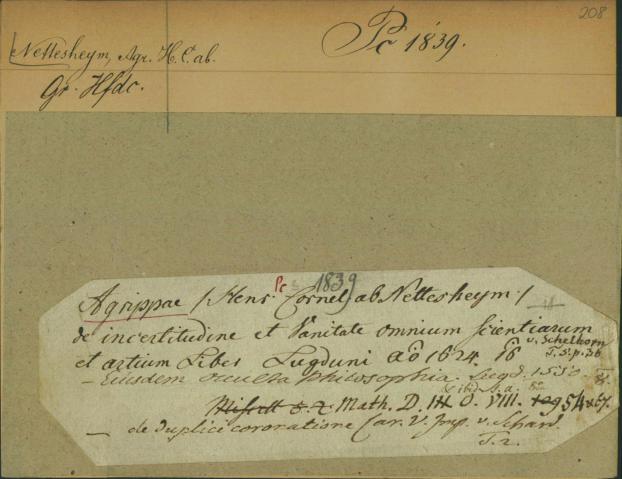 208
Nettesheym, Agr. H. C. ab. Pc 1839.
Gr. Hfdc.
Pc 1839
Agrippae /Henr. Cornel, ab Nettesheym:/
de incertitudine et Vanitate omnium scientiarum
et artium Liber Lugduni aõ 1624. v. Schelhorn
T. 5. p. 36
– Eiusdem occulta Philosophia. Lugd. 1550
Math. D. O. VIII. 54
– de duplici coronatione Car. V. Imp. v. Schard.
T. 2.